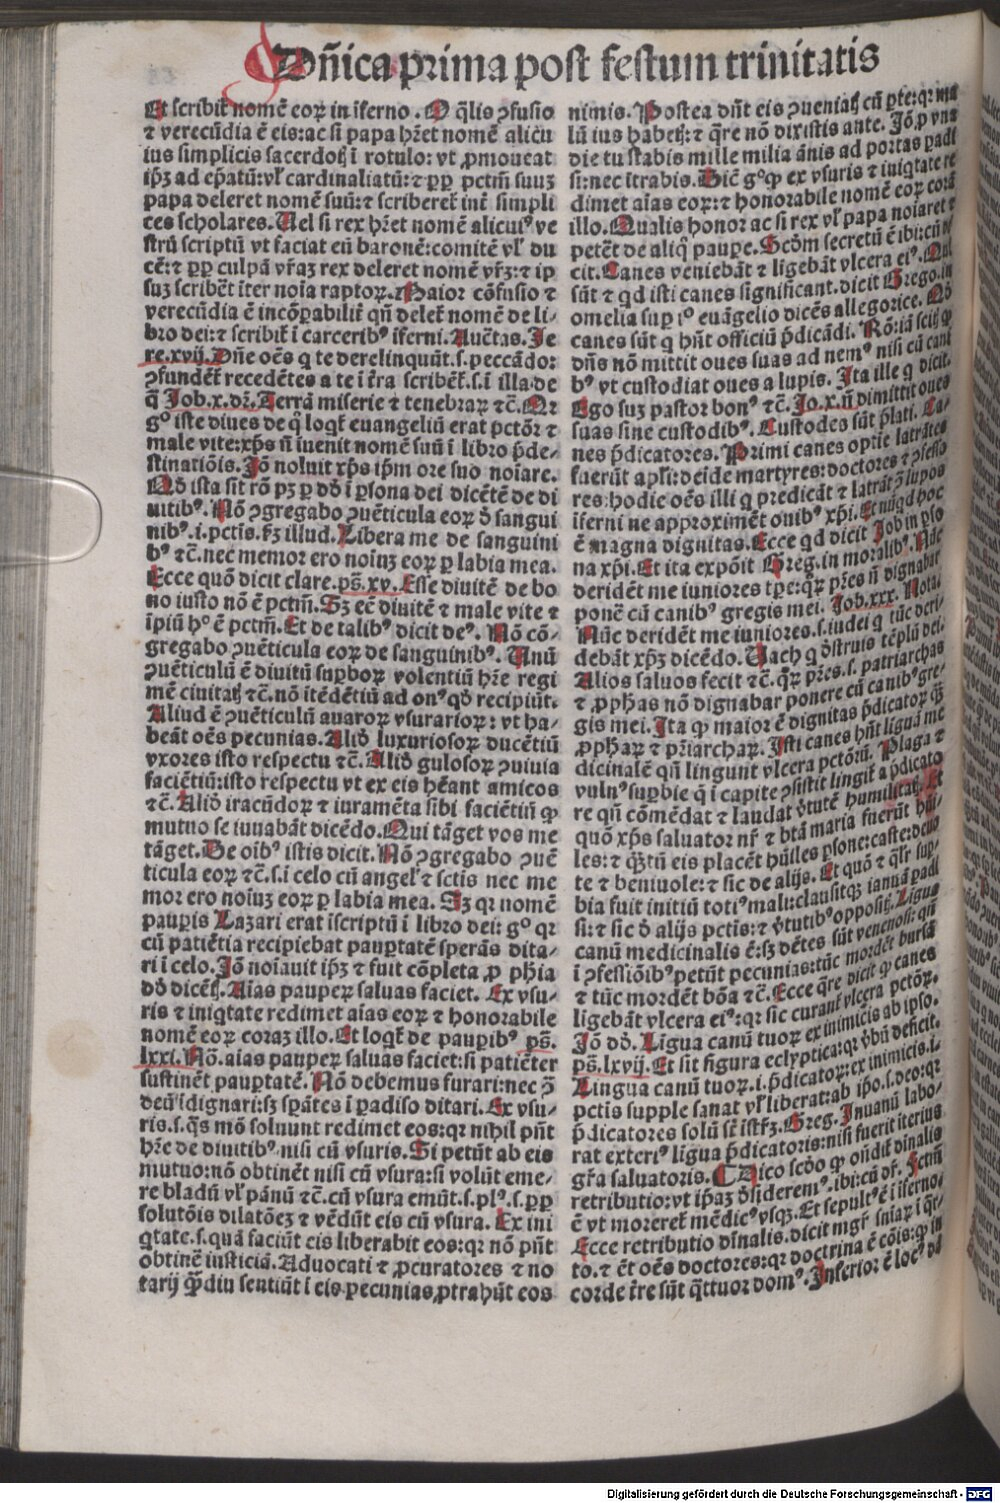 Dn̄ica prima post festum trinitatis
Et scribit͛ nomē eoꝝ in īferno. O q̄lis ꝯfusio
⁊ verecūdia ē eis: ac si papa hr̄et nomē alicu
ius simplicis sacerdotꝭ ī rotulo: vt ꝓmoueat
ip̄ꝫ ad ep̄atū: vl̓ cardinalatū: ⁊ ꝓp̄ pctm̄ suuꝫ
papa deleret nomē suū: ⁊ scriberet͛ inē simpli
ces scholares. Uel si rex hr̄et nomē alicuiꝰ ve
strū scriptū vt faciat eū baronē: comitē vl̓ du
cē: ⁊ ꝓp̄ culpā vr̄aꝫ rex deleret nomē vr̄ꝫ: ⁊ ip
suꝫ scribēt īter noīa raptoꝝ. Maior cōfusio ⁊
verecūdia ē incōꝑabilit͛ qn̄ delet͛ nomē de li-
bro dei: ⁊ scribit͛ ī carceribꝰ īferni. Auc̄tas. Je
re.xvij. Dn̄e oēs q te derelinquūt.s. peccādo:
ꝯfundēt͛ recedētes a te ī t̄ra scribēt͛.s.ī illa de
q̄ Job.x.dr̄. Terrā miserie ⁊ tenebraꝝ ⁊c̄. Qr
gͦ iste diues de q̊ loqt͛ euangeliū erat pctōr ⁊
male vite: xp̄s n̄ īuenit nomē suū ī libro p̄de-
stinatiōis. Jō noluit xp̄s ip̄m ore suo noīare.
Nō ista sit rō pꝫ ꝑ dō ī ꝑsona dei dicētē de di
uitibꝰ. Nō ꝯgregabo ꝯuēticula eoꝝ đ sangui
nibꝰ.i.pctis. ẜꝫ illud. Libera me de sanguini
bꝰ ⁊c̄. nec memor ero noīuꝫ eoꝝ ꝑ labia mea.
Ecce quō dicit clare. ps̄.xv. Esse diuitē de bo
no iusto nō ē pctm̄. Sꝫ ec̄ diuitē ⁊ male vite ⁊
īpiū hͦ ē pctm̄. Et de talibꝰ dicit deꝰ. Nō cō-
gregabo ꝯuēticula eoꝝ de sanguinibꝰ. Unū
ꝯuēticulū ē diuitū suꝑboꝝ volentiū hr̄e regi
mē ciuitatꝭ ⁊c̄. nō itēdētiū ad onꝰ qđ recipiūt.
Aliud ē ꝯuēticulū auaroꝝ vsurarioꝝ: vt ha-
beāt oēs pecunias. Aliđ luxuriosoꝝ ducētiū
vxores isto respectu ⁊c̄. Aliđ gulosoꝝ ꝯuiuia
faciētiū: isto respectu vt ex eis hēant amicos
⁊c̄. Aliđ iracūdoꝝ ⁊ iuramēta sibi faciētiū ꝙ
mutuo se iuuabāt dicēdo. Qui tāget vos me
tāget. De oībꝰ istis dicit. Nō ꝯgregabo ꝯuē
ticula eoꝝ ⁊c̄.s.ī celo cū angel̓ ⁊ sctis nec me
mor ero noīuꝫ eoꝝ ꝑ labia mea. Sꝫ qr nomē
pauꝑis Lazari erat īscriptū ī libro dei: gͦ qr
cū patiētia recipiebat pauꝑtatē sperās dita-
ri ī celo. Jō noīauit ip̄ꝫ ⁊ fuit cōpleta ꝓphīa
dđ dicētꝭ. Aīas pauperꝝ saluas faciet. Ex vsu-
ris ⁊ iniqtate redimet aīas eoꝝ ⁊ honorabile
nomē eoꝝ coraꝫ illo. Et loqt͛ de pauꝑibꝰ ps̄.
lxxi. Nō. aīas pauperꝝ saluas faciet: si patiēter
sustinēt pauꝑtatē. Nō debemus furari: nec ꝯ̄
deū īdignari: sꝫ sꝑātes ī ꝑadiso ditari. Ex vsu-
ris.s.q̄s mō soluunt redimet eos: qr nihil pn̄t
hr̄e de diuitibꝰ nisi cū vsuris. Si petūt ab eis
mutuo: nō obtinēt nisi cū vsura: si volūt eme-
re bladū vl̓ pānū ⁊c̄. cū vsura emūt.s.plꝰ.s.ꝓp̄
solutōis dilatōeꝫ ⁊ vēdūt eis cū vsura. Ex ini
qtate.s.quā faciūt eis liberabit eos: qr nō pn̄t
obtinē iusticiā. Aduocati ⁊ ꝓcuratores ⁊ no
tarij q̄ꝫdiu sentiūt ī eis pecunias ꝓtrahūt eos
nimis. Postea dn̄t eis ꝯueniatꝭ cū ꝑte: qr ma
lū ius habetꝭ: ⁊ q̄re nō dixistis ante. Jō ꝓ vna
die tu stabis mille milia ānis ad portas ꝑadi
si: nec ītrabis. Sic̄ gͦ ꝙ ex vsuris ⁊ iniqtate re
dimet aīas eoꝝ: ⁊ honorabile nomē eoꝝ corā
illo. Qualis honor ac si rex vl̓ papa noīaret ⁊
petēt de aliq̄ pauꝑe. Scđm secretū ē ibi: cū di
cit. Canes veniebāt ⁊ ligebāt vlcera eiꝰ. Qui
sūt ⁊ qd isti canes significant. dicit Grego. in
omelia suꝑ iͦ euāgelio dicēs allegorice. Nō
canes sūt q hn̄t officiū p̄dicādi. Rō: iā scitꝭ ꝙ
dn̄s nō mittit oues suas ad nemꝰ nisi cū cani
bꝰ vt custodiat oues a lupis. Ita ille q dicit.
Ego suꝫ pastor bonꝰ ⁊c̄. Jo.x. n̄ dimittit oues
suas sine custodibꝰ. Custodes sūt p̄lati. Ca-
nes p̄dicatores. Primi canes optīe latrātes
fuerūt apl̓i: deīde martyres: doctores ⁊ ꝯfesso
res: hodie oēs illi q predicāt ⁊ latrāt ꝯ̄ lupos
īferni ne approximēt ouibꝰ xp̄i. Et nūqd hoc
ē magna dignitas. Ecce qd dicit Job in ꝑso
na xp̄i. Et ita expōit Greg. in moralibꝰ. Nūc
deridēt me iuniores tꝑe: qͬꝝ pr̄es n̄ dignabar
ponē cū canibꝰ gregis mei. Job.xxx. Nota.
Nūc deridēt me iuniores.s.iudei q tūc deri-
debāt xp̄ꝫ dicēdo. Uach q đstruis tēplū dei.
Alios saluos fecit ⁊c̄. qͬꝝ pr̄es.s. patriarchas
⁊ ꝓphas nō dignabar ponere cū canibꝰ gre-
gis mei. Ita ꝙ maior ē dignitas p̄dicatoꝝ q̄ꝫ
ꝓphaꝝ ⁊ pr̄iarchaꝝ. Isti canes hn̄t linguā me
dicinalē qn̄ lingunt vlcera pctōrū. Plaga ⁊
vulnꝰ suꝑbie q̄ ī capite ꝯsistit lingit͛ a p̄dicato
re qn̄ cōmēdat ⁊ laudat v̓tutē humilitatꝭ. Et
quō xp̄s saluator nr̄ ⁊ btā maria fuerūt hūi-
les: ⁊ q̄ꝫtū eis placēt hūiles ꝑsone: caste: deuo
te ⁊ beniuole: ⁊ sic de alijs. Et quō ⁊ ql̓r suꝑ-
bia fuit initiū totiꝰ mali: clausitqꝫ ianuā ꝑadi
si: ⁊ sic đ alijs pctis: ⁊ v̓tutibꝰ oppositꝭ. Ligua
canū medicinalis ē: sꝫ dētes sūt venenosi: qn̄
ī ꝯfessiōibꝰ petūt pecunias: tūc mordēt bursā
⁊ tūc mordēt bōa ⁊c̄. Ecce q̄re dicit ꝙ canes
ligebāt vlcera eiꝰ: qr sic curant͛ vlcera pctōꝝ.
Jō dđ. Ligua canū tuoꝝ ex inimicis ab ipso.
ps̄.lxvij. Et sit figura eclyptica: qr v̓bū deficit.
Lingua canū tuoꝝ.i. p̄dicatoꝝ: ex inimicis.i.
pctis supple sanat vl̓ liberat: ab ip̄o.s. deo: qr
p̄dicatores solū st̄ īstrꝫ. Greg. Inuanū labo-
rat exteriꝰ ligua p̄dicatoris: nisi fuerit iterius
gr̄a saluatoris. ¶ Dico scđo ꝙ on̄dit͛ dīnalis
retributio: vt ip̄aꝫ đsideremꝰ. ibi: cū dr̄. Fctm̄
ē vt moreret͛ mēdicꝰ vsqꝫ. Et sepultꝰ ē ī īferno.
Ecce retributio dīnalis. dicit mgr̄ sniaꝝ ī qͬ-
to. ⁊ ēt oēs doctores: qr doctrina ē cōis: ꝙ in
corde t̄re sūt q̄ttuor domꝰ. Inferior ē locꝰ dā
Digitalisierung gefördert durch die Deutsche Forschungsgemeinschaft - DFG